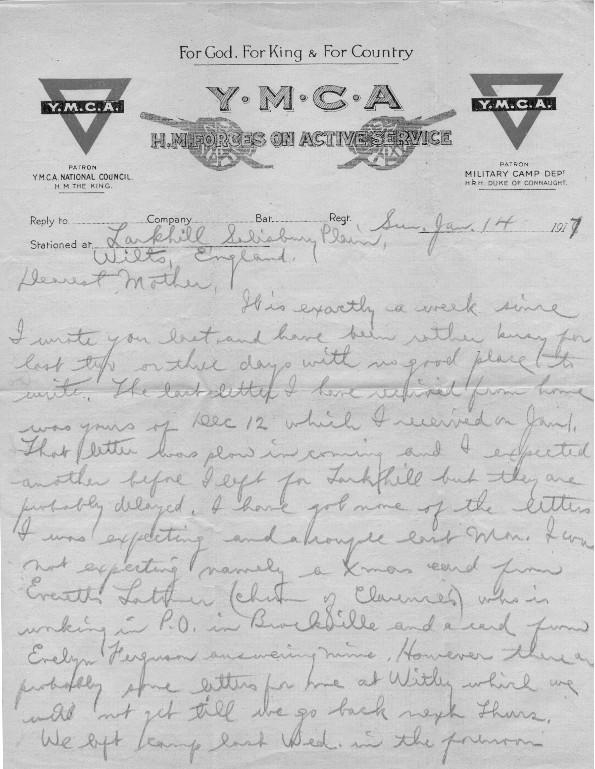 For God. For King & For Country
Y.M.C.A
H.M. FORCES ON ACTIVE SERVICE
Y.M.C.A.
PATRON
Y.M.C.A. NATIONAL COUNCIL.
H.M. THE KING.
Y.M.C.A.
PATRON
MILITARY CAMP DEPT
H.R.H. DUKE OF CONNAUGHT.
Reply to Company Bat. Regt. Sun. Jan. 14 1917
Stationed at Larkhill Salisbury Plain,
Wilts, England.
Dearest Mother,
It is exactly a week since
I wrote you last and have been rather busy for
last two or three days with no good place to
write. The last letter I have received from home
was yours of Dec 12 which I received on Jan 1.
That letter was slow in coming and I expected
another before I left for Larkhill but they are
probably delayed. I have got none of the letters
I was expecting and a couple last Mon. I was
not expecting namely a Xmas card from
Everetts (chum of Clarence's) who is
working in P.O. in Brockville and a card from
Evelyn Ferguson answering mine. However there are
probably some letters for me at Witley which we
will not get till we go back next Thurs.
We left camp last Wed. in the forenoon